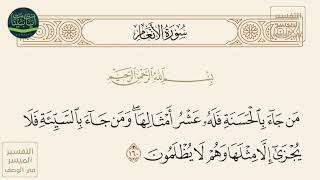 سُورَةُ الأَنْعَامِ
بِسْمِ اللَّهِ الرَّحْمَٰنِ الرَّحِيمِ
مَن جَآءَ بِٱلْحَسَنَةِ فَلَهُۥ عَشْرُ أَمْثَالِهَا ۖ وَمَن جَآءَ بِٱلسَّيِّئَةِ فَلَا
يُجْزَىٰٓ إِلَّا مِثْلَهَا وَهُمْ لَا يُظْلَمُونَ ١٦٠
التفسير
الميسر
في الوصف